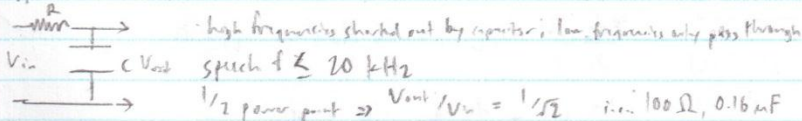 R
- high frequencies shorted out by capacitor; low frequencies only pass through
Vin C Vout speech f ≲ 20 kHz
1/2 power point => Vout/Vin = 1/√2 i.e. 100 Ω, 0.16 μF